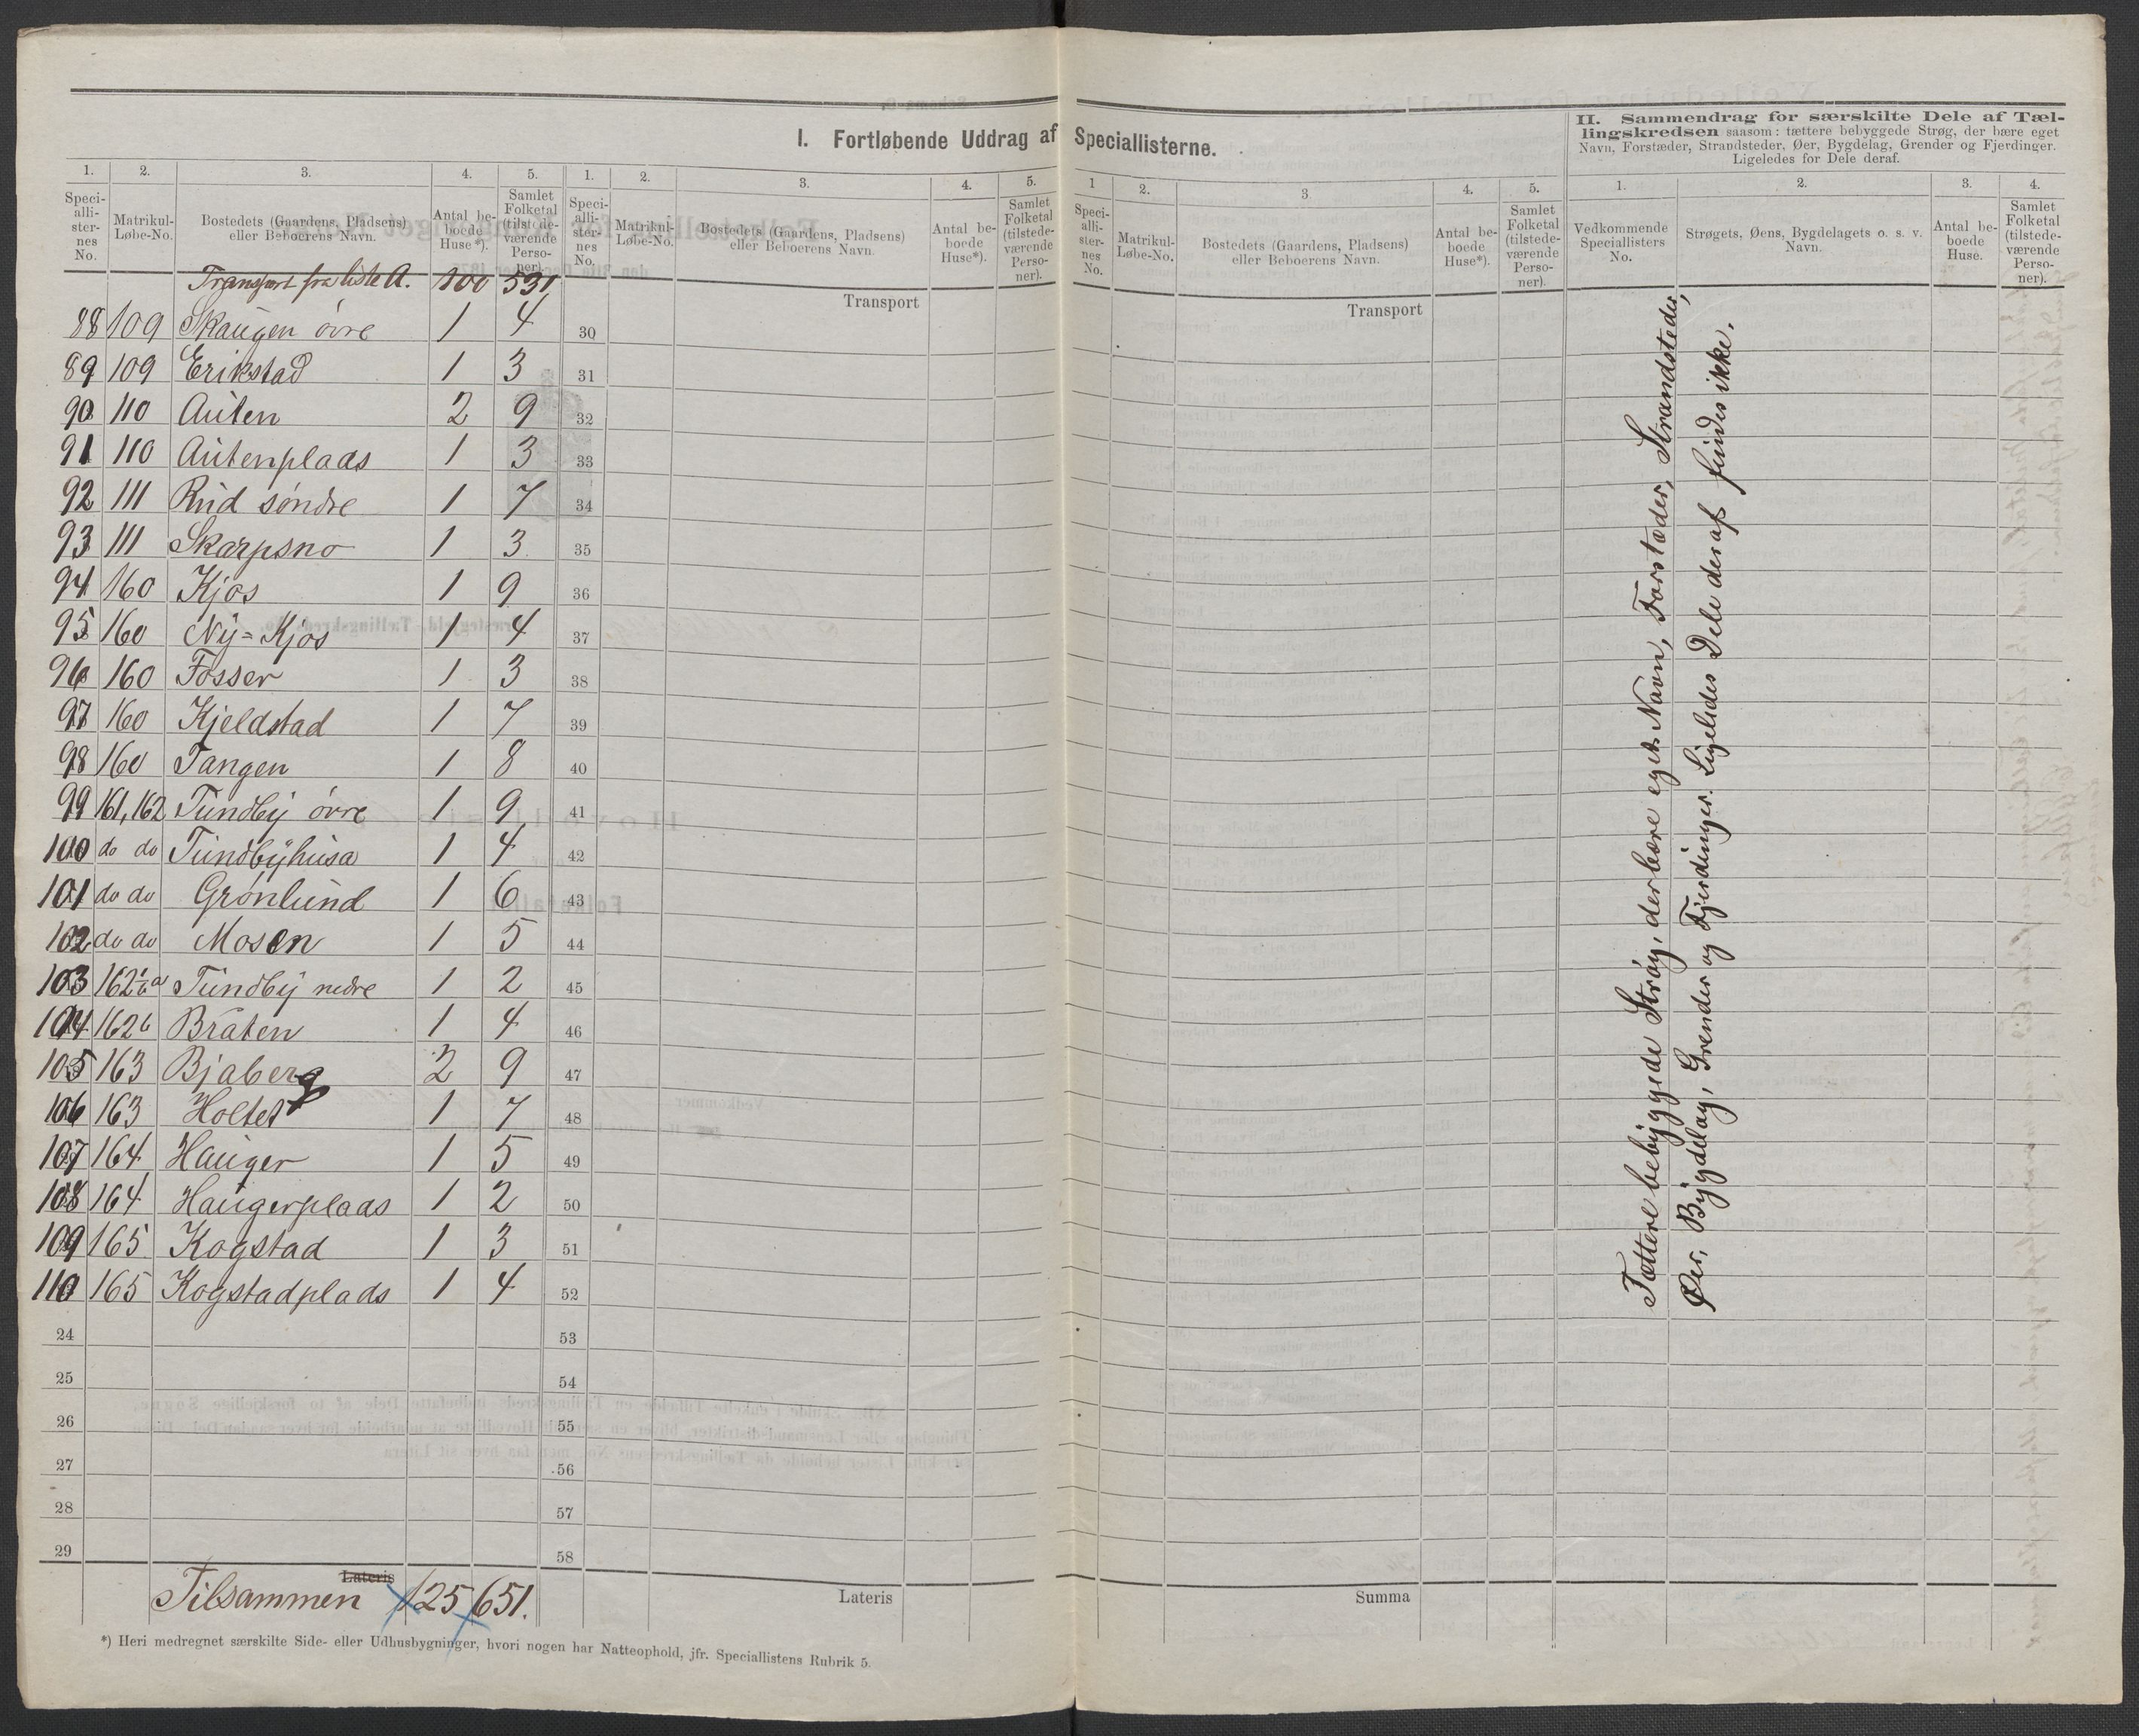 I. Fortløbende Uddrag af Speciallisterne.
II. Sammendrag for særskilte Dele af Tæl-
lingskredsen saasom: tættere bebyggede Strøg, der bære eget
Navn, Forstæder, Strandsteder, Øer, Bygdelag, Grender og Fjerdinger.
Ligeledes for Dele deraf.
1. 2. 3. 4. 5. 1. 2. 3. 4. 5. 1 2. 3. 4. 5. 1. 2. 3. 4.
Speci-
alli-
ster-
nes
No.
Matrikul-
Løbe-No.
Bostedets (Gaardens, Pladsens)
eller Beboerens Navn.
Antal be-
boede
Huse*).
Samlet
Folketal
(tilstede-
værende
Perso-
ner).
Speci-
alli-
ster-
nes
No.
Matrikul-
Løbe-No.
Bostedets (Gaardens, Pladsens)
eller Beboerens Navn.
Antal be-
boede
Huse*).
Samlet
Folketal
(tilstede-
værende
Perso-
ner).
Speci-
alli-
ster-
nes
No.
Matrikul-
Løbe-No.
Bostedets (Gaardens, Pladsens)
eller Beboerens Navn.
Antal be-
boede
Huse*).
Samlet
Folketal
(tilstede-
værende
Perso-
ner).
Vedkommende
Speciallisters
No.
Strøgets, Øens, Bygdelagets o. s. v.
Navn.
Antal be-
boede
Huse.
Samlet
Folketal
(tilstede-
værende
Perso-
ner).
Transport fra liste A. 100 531
Transport
Transport
88 109 Skaugen övre 1 4 30
89 109 Erikstad 1 3 31
90 110 Auten 2 9 32
91 110 Autenplads 1 3 33
92 111 Rud söndre 1 7 34
93 111 Skarpsno 1 3 35
94 160 Kjos 1 9 36
95 160 Ny=Kjos 1 4 37
96 160 Fosser 1 3 38
97 160 Kjeldstad 1 7 39
98 160 Tangen 1 8 40
99 161,162 Tundby övre 1 9 41
100 do do Tundbyhusa 1 4 42
101 do do Grönlund 1 6 43
102 do do Mosen 1 5 44
103 162 Tundby nedre 1 2 45
104 162b Bråten 1 4 46
105 163 Bjaberg 2 9 47
106 163 Holtet 1 7 48
107 164 Hauger 1 5 49
108 164 Haugerplads 1 2 50
109 165 Kogstad 1 3 51
110 165 Kogstadplads 1 4 52
24 53
25 54
26 55
27 56
28 57
29 58
Lateris
Tilsammen 125 651.
Lateris
Summa
*) Heri medregnet særskilte Side- eller Udhusbygninger, hvori nogen har Natteophold, jfr. Speciallistens Rubrik 5.
Tættere bebyggede Strög, der bære eget Navn, Forstæder, Strandsteder,
Øer, Bygdelag, Grender og Fjerdinger. Ligeledes Dele deraf findes ikke.